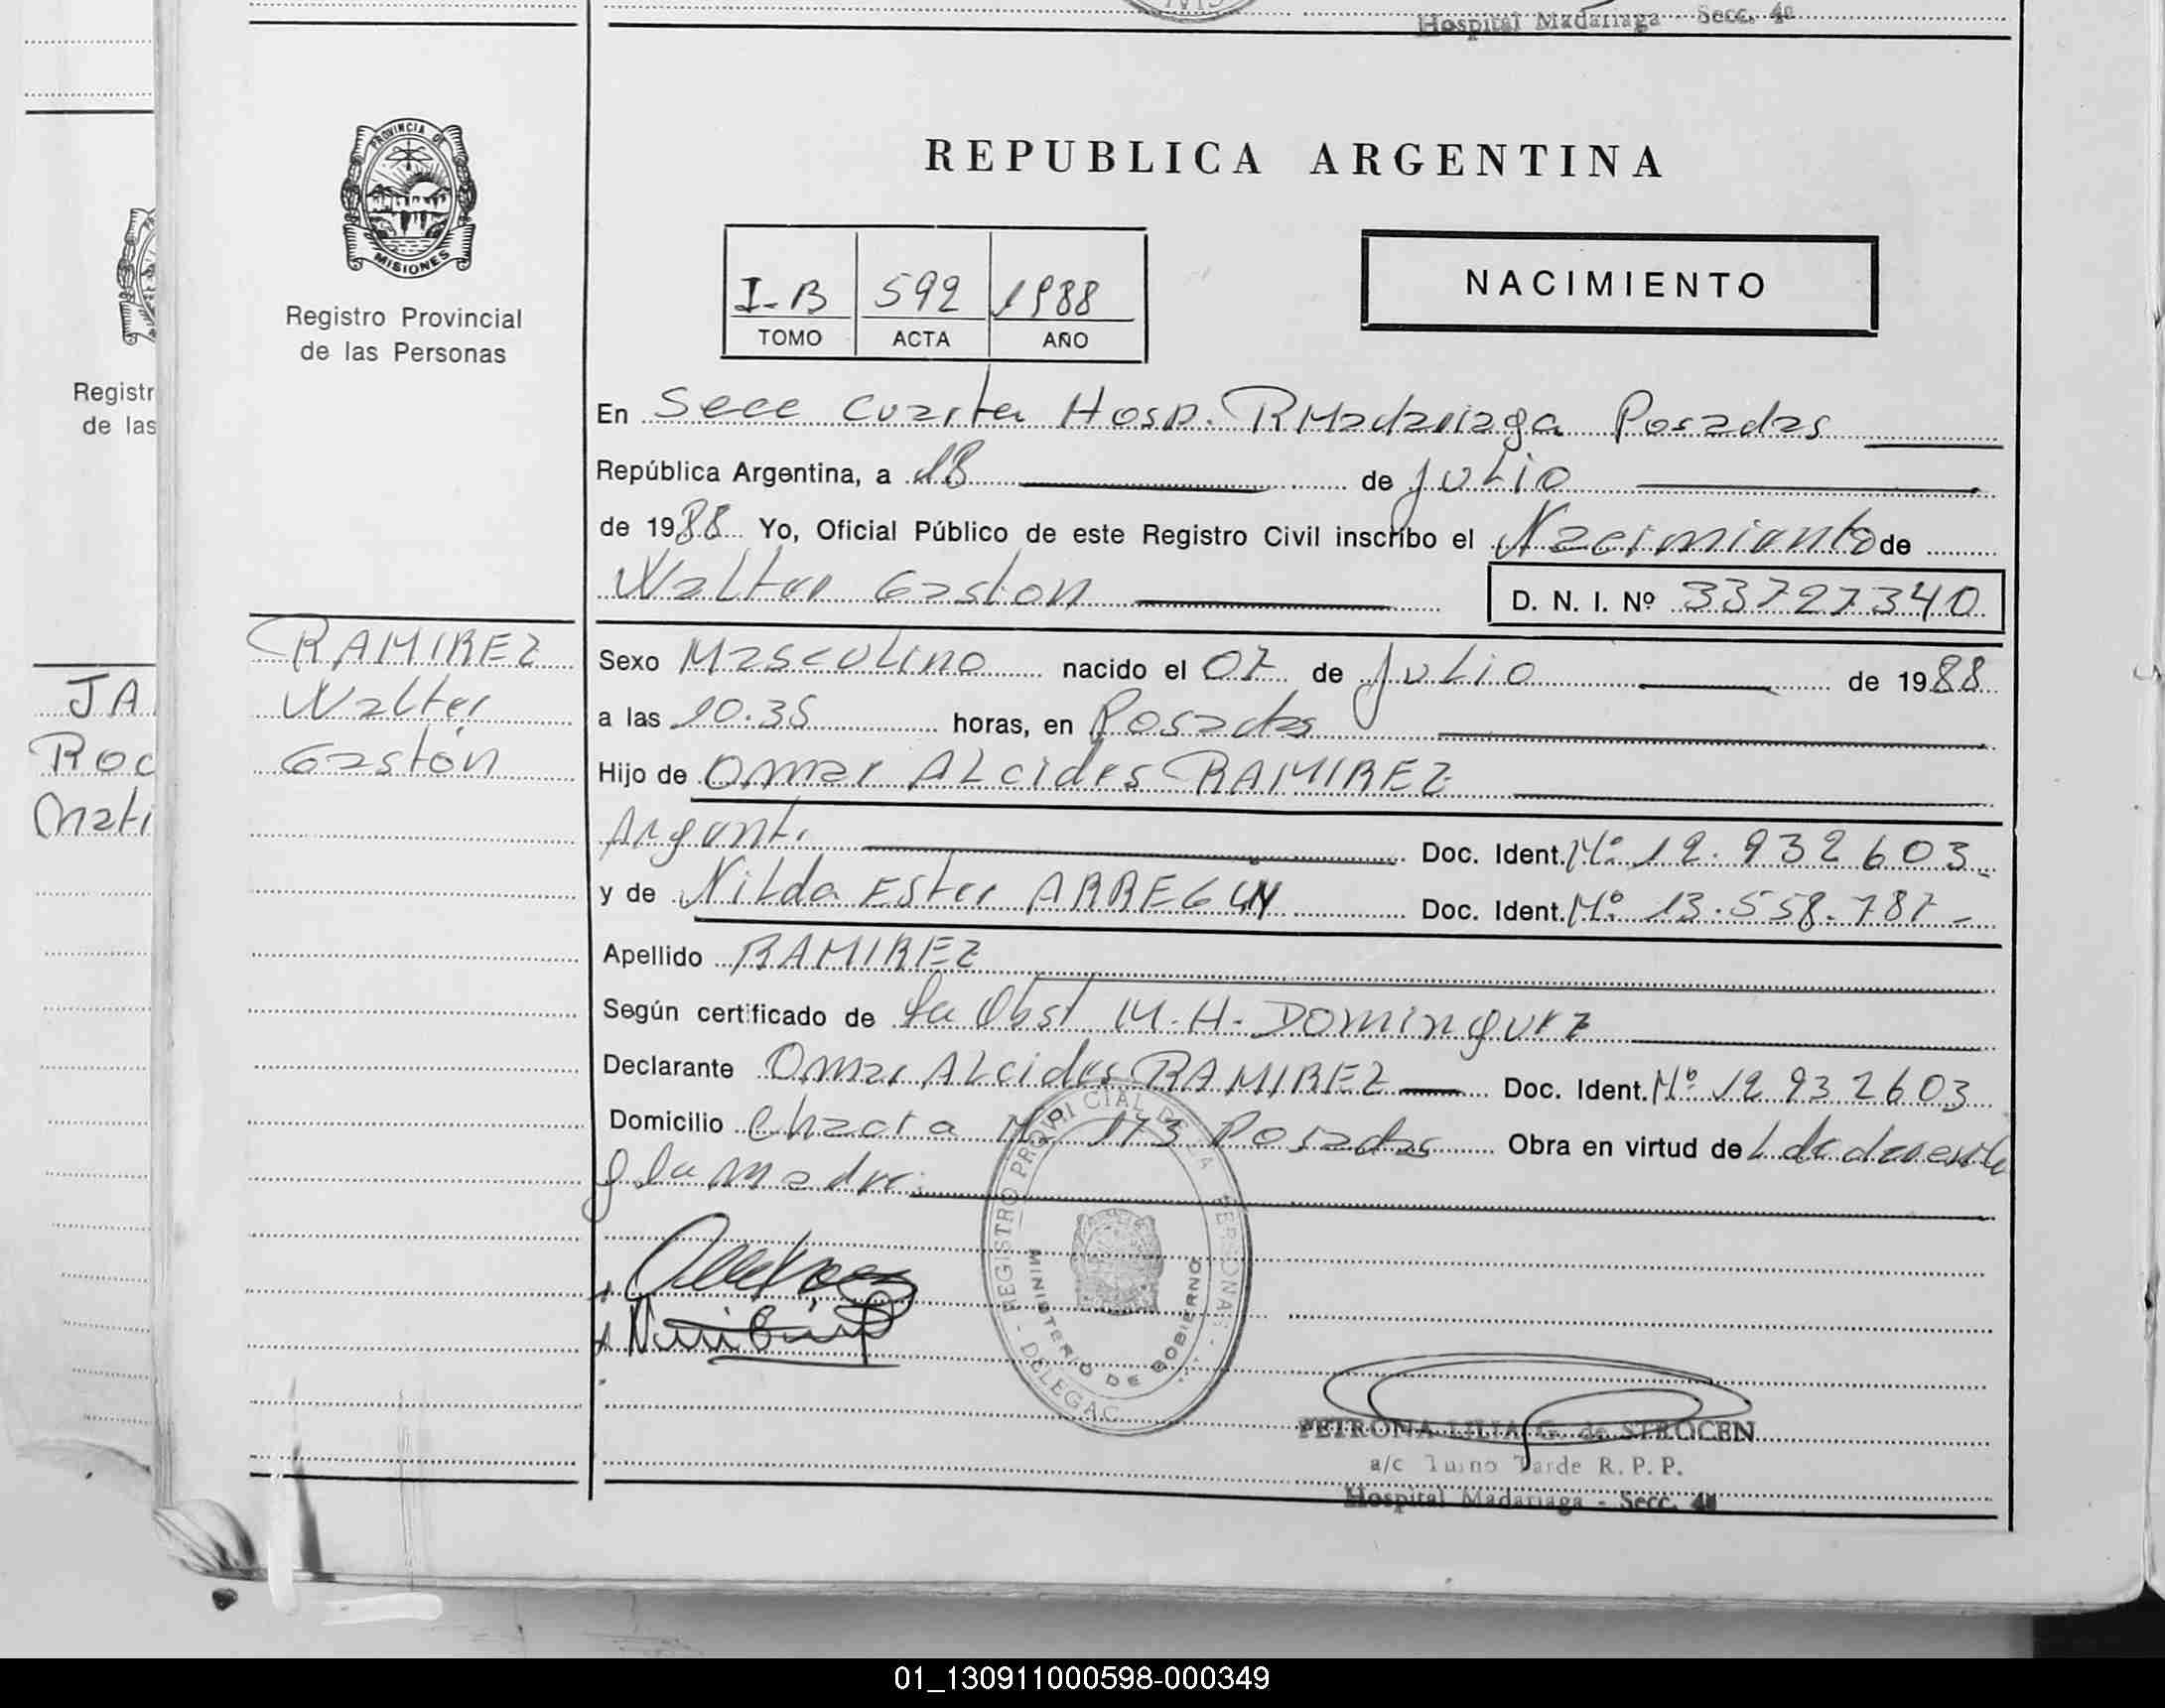 Hospital Madariaga - Secc. 4ª
PROVINCIA DE
MISIONES
Registro Provincial
de las Personas
Registr
de las
JA
Roc
Mati
RAMIREZ
Walter
Gastón
REPUBLICA ARGENTINA
I-B 592 1988
TOMO ACTA AÑO
NACIMIENTO
En Secc Cuarta Hosp. RMadariaga Posadas
República Argentina, a 18 de Julio
de 1988 Yo, Oficial Público de este Registro Civil inscribo el Nacimiento de
Walter Gaston D. N. I. Nº 33727340
Sexo Masculino nacido el 07 de Julio de 1988
a las 10.35 horas, en Posadas
Hijo de Omar ALcides RAMIREZ
Argent. Doc. Ident. Nº 12.932603
y de NiLda Ester ARREGUY Doc. Ident. Nº 13.558.787
Apellido RAMIREZ
Según certificado de La Obst M.H. Dominguez
Declarante Omar ALcides RAMIREZ Doc. Ident. Nº 12932603
Domicilio Chacra Nº 173 Posadas Obra en virtud de L de
y la madre.
REGISTRO PROVINCIAL DE LA PERSONAS - DELEGAC
MINISTERIO DE GOBIERNO
PETRONA LILIA G. de STROCEN
a/c Turno Tarde R. P. P.
Hospital Madariaga - Secc. 4ª
01_130911000598-000349